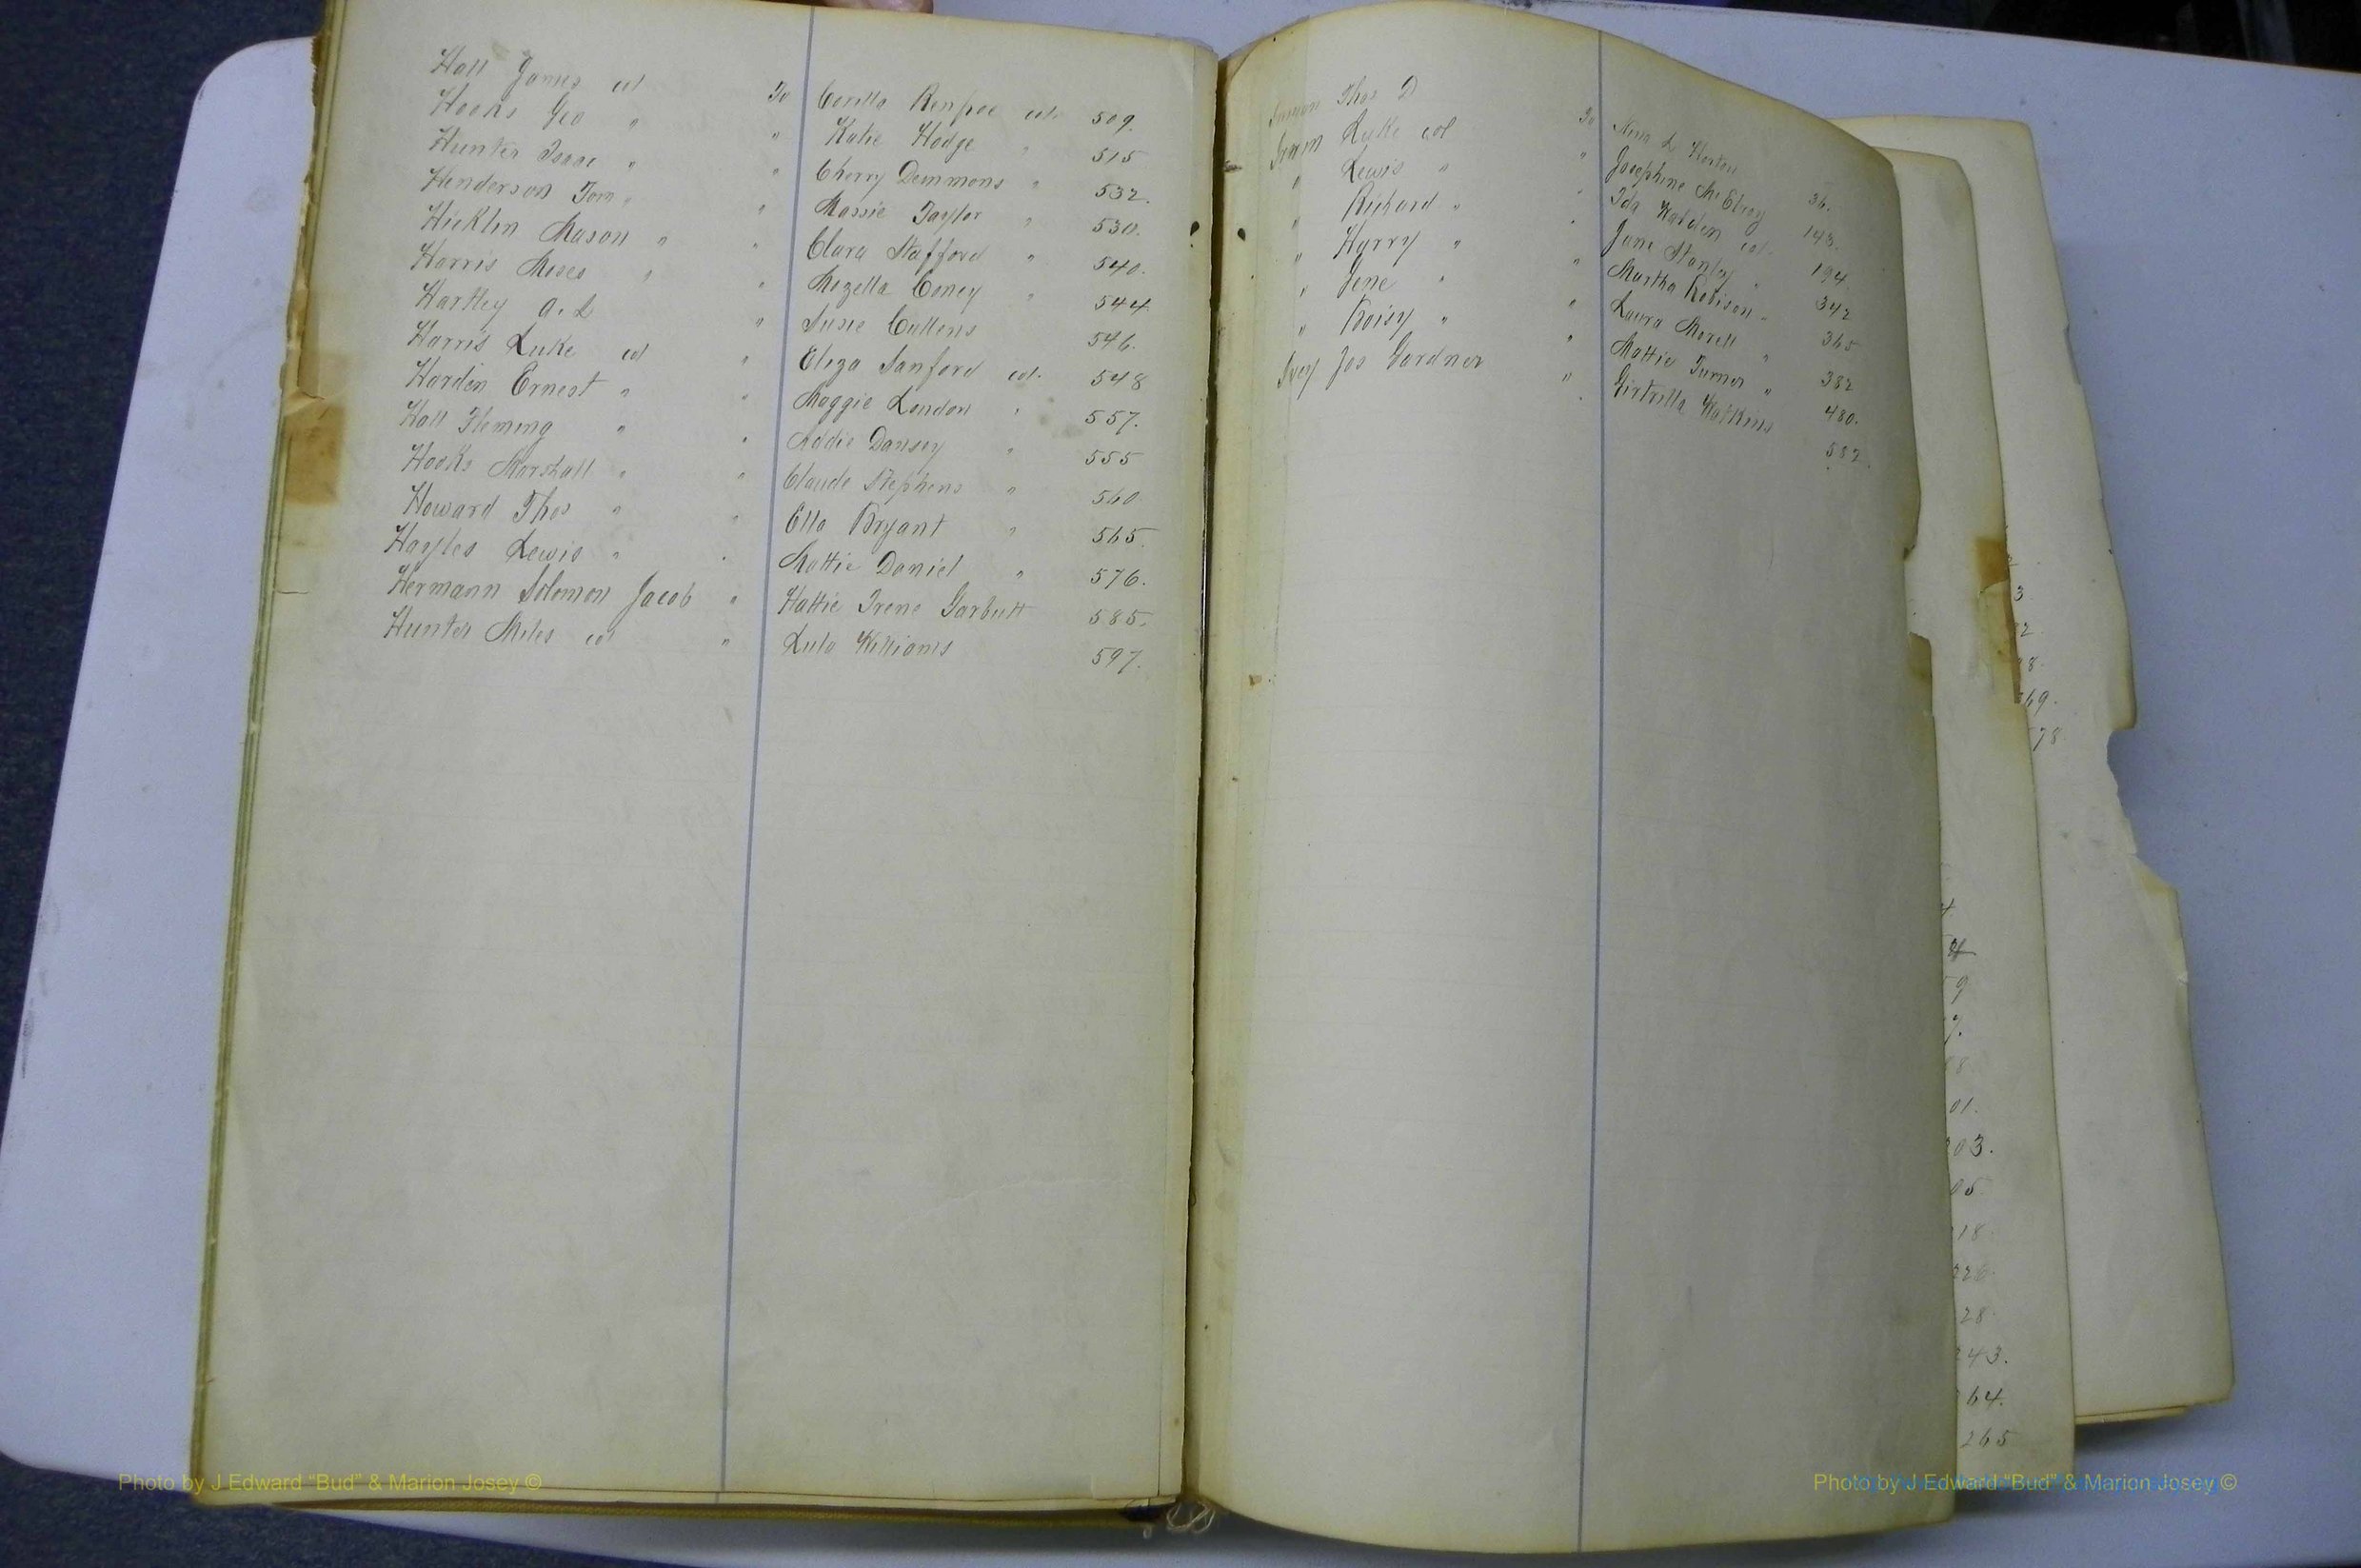 Hall James col To Corilla Renfroe col. 509.
Hooks Geo " " Katie Hodge " 515
Hunter Isaac " " Cherry Demmons " 532.
Henderson Tom " " Massie Taylor " 530.
Hicklin Mason " " Clara Stafford " 540.
Harris Moses " " Mozella Coney " 544
Hartley A. L " Susie Cullens 546.
Harris Luke col " Eliza Sanford col. 548
Hardin Ernest " " Maggie London " 557.
Hall Fleming " " Addie Dansey " 555
Hooks Marshall " " Claude Stephens " 560
Howard Thos " " Ella Bryant " 565.
Hayles Lewis " " Mattie Daniel " 576.
Hermann Solomon Jacob " Hattie Irene Garbutt 585.
Hunter Miles col " Lula Williams 597.
Thos D To L Horton 36.
Luke col " Josephine McElroy 143.
" Lewis " " Ida Walden col. 194
" Richard " " Jane Stanley " 342
" Harry " " Martha Robison " 365
" Gene " " Laura Morell " 382
" Boisy " " Mattie Turner " 480.
Ivey Jos Gardner " Girtrilla Watkins 582.
3
2
8.
69.
78
4
9
7.
8
01.
03.
05
18.
226
28
243.
64.
265
Photo by J Edward "Bud" & Marion Josey ©
Photo by J Edward "Bud" & Marion Josey ©